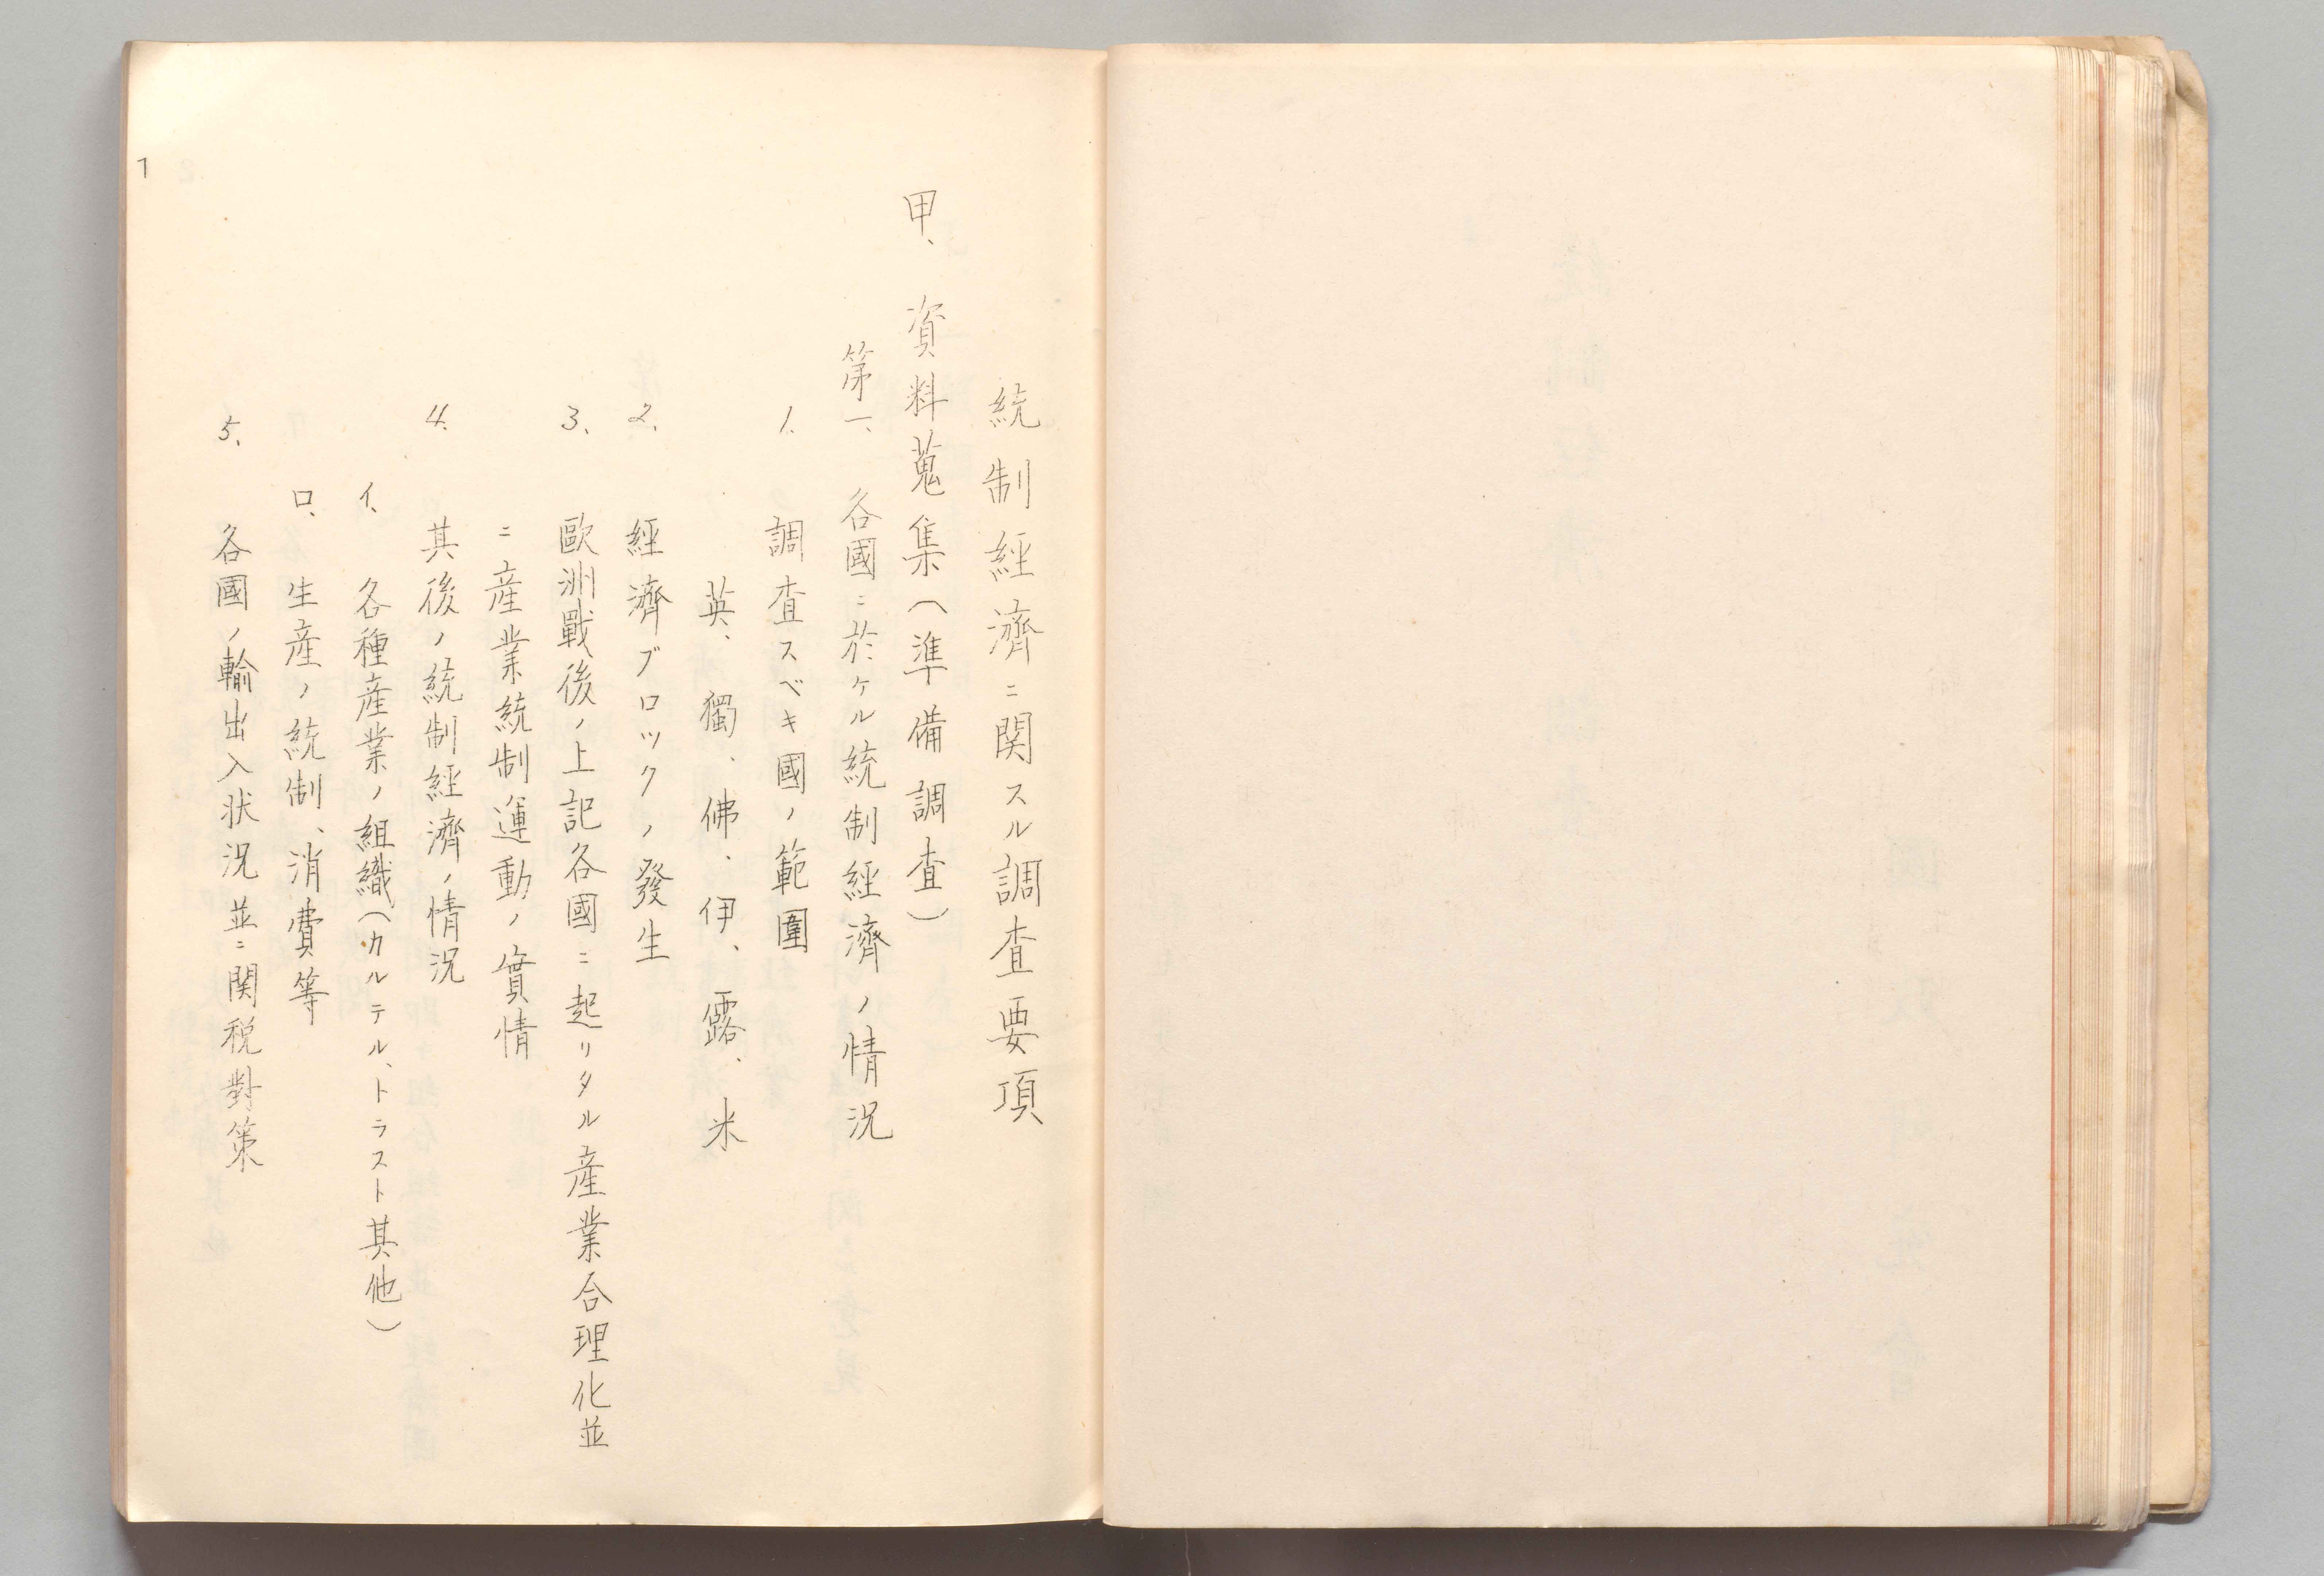 統制經濟ニ関スル調査要項
甲、資料蒐集（準備調査）
第一、各國ニ於ケル統制經濟ノ情況
1. 調査スベキ國ノ範圍
英、獨、佛、伊、露、米
2. 經濟ブロックノ發生
3. 歐洲戰後ノ上記各國ニ起リタル産業合理化並
ニ産業統制運動ノ實情
4. 其後ノ統制經濟ノ情況
イ、各種産業ノ組織（カルテル、トラスト其他）
ロ、生産ノ統制、消費等
5. 各國ノ輸出入状況並ニ関税對策
1